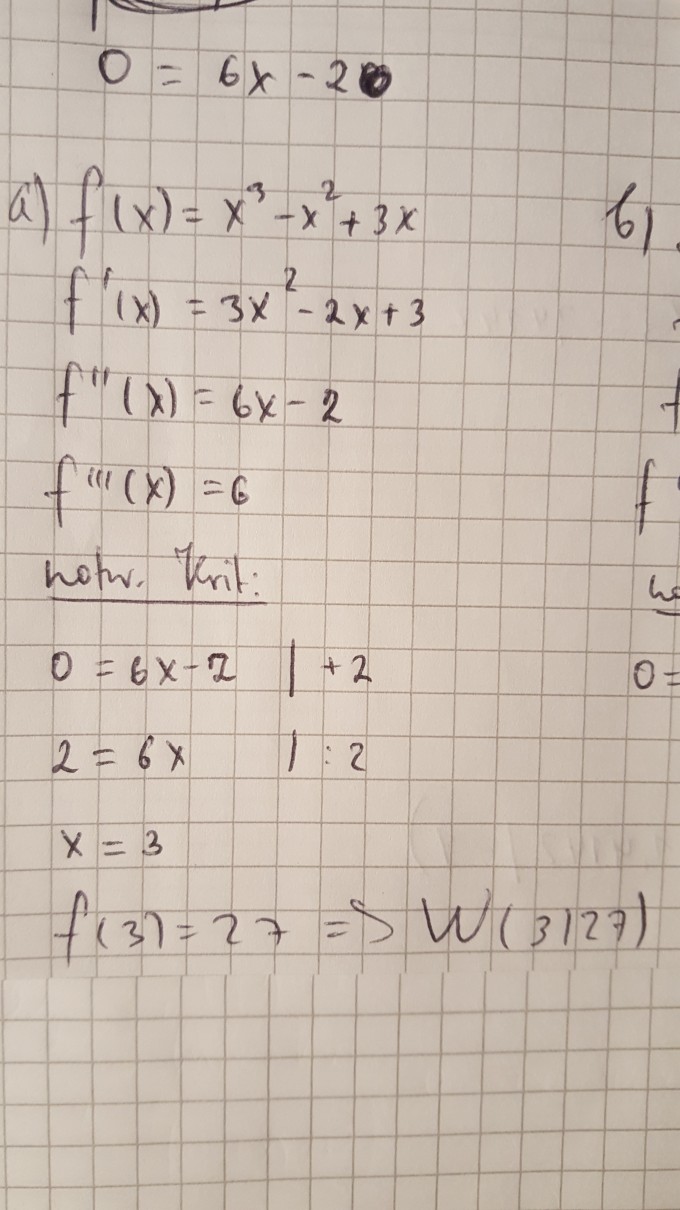 0 = 6x - 2
a) f(x) = x³ - x² + 3x
f'(x) = 3x² - 2x + 3
f''(x) = 6x - 2
f'''(x) = 6
notw. Krit:
0 = 6x - 2 | + 2
2 = 6x | : 2
x = 3
f(3) = 27 => W(3|27)
b)
f
f
0 =